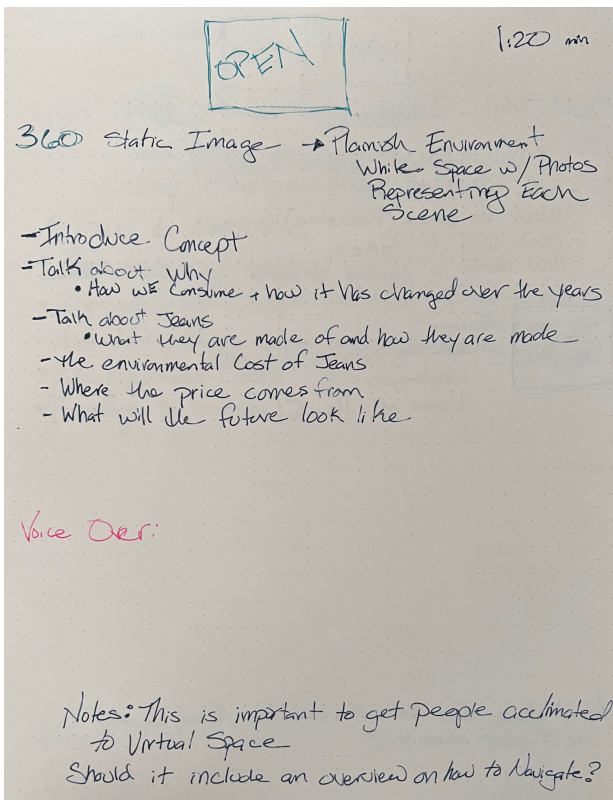 OPEN
1:20 min
360 Static Image → Plamish Environment
White Space w/ Photos
Representing Each
Scene
- Introduce Concept
- Talk about Why
• How WE Consume + how it has changed over the years
- Talk about Jeans
• What they are made of and how they are made
- The environmental Cost of Jeans
- Where the price comes from
- What will the future look like
Voice Over:
Notes: This is important to get people acclimated
to Virtual Space
Should it include an overview on how to Navigate?